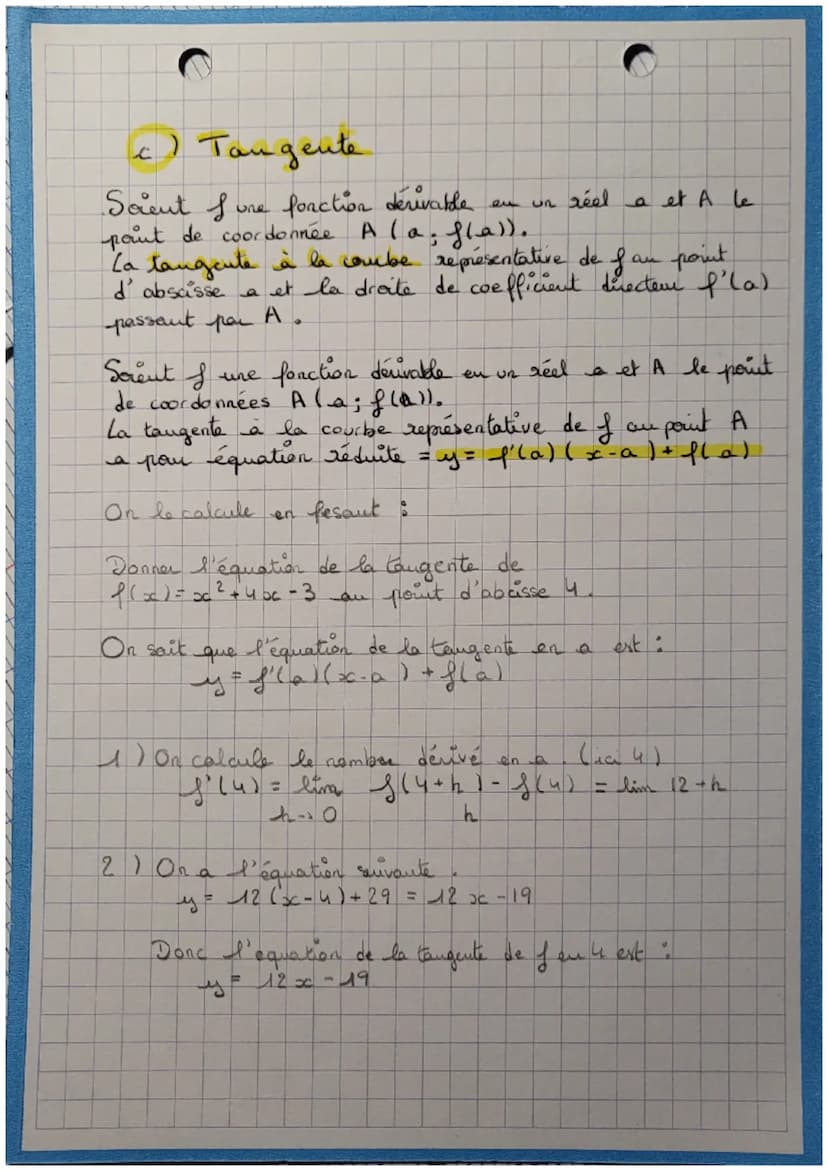 c) Tangente
Soient f une fonction dérivable en un réel a et A le
point de coordonnée A (a ; f(a)).
La tangente à la courbe représentative de f au point
d'abscisse a et la droite de coefficient directeur f'(a)
passant par A.
Soient f une fonction dérivable en un réel a et A le point
de coordonnées A (a ; f(a)).
La tangente à la courbe représentative de f au point A
a pour équation réduite = y = f'(a) (x-a) + f(a)
On le calcule en fesant :
Donner l'équation de la tangente de
f(x) = x² + 4x - 3 au point d'abcisse 4.
On sait que l'équation de la tangente en a est :
y = f'(a)(x-a) + f(a)
1) On calcule le nombre dérivé en a. (ici 4)
f'(4) = lim f(4+h) - f(4) = lim 12 + h
h→0 h
2) On a l'équation suivante.
y = 12(x-4)+29 = 12x-19
Donc l'equation de la tangente de f en 4 est :
y = 12x - 19